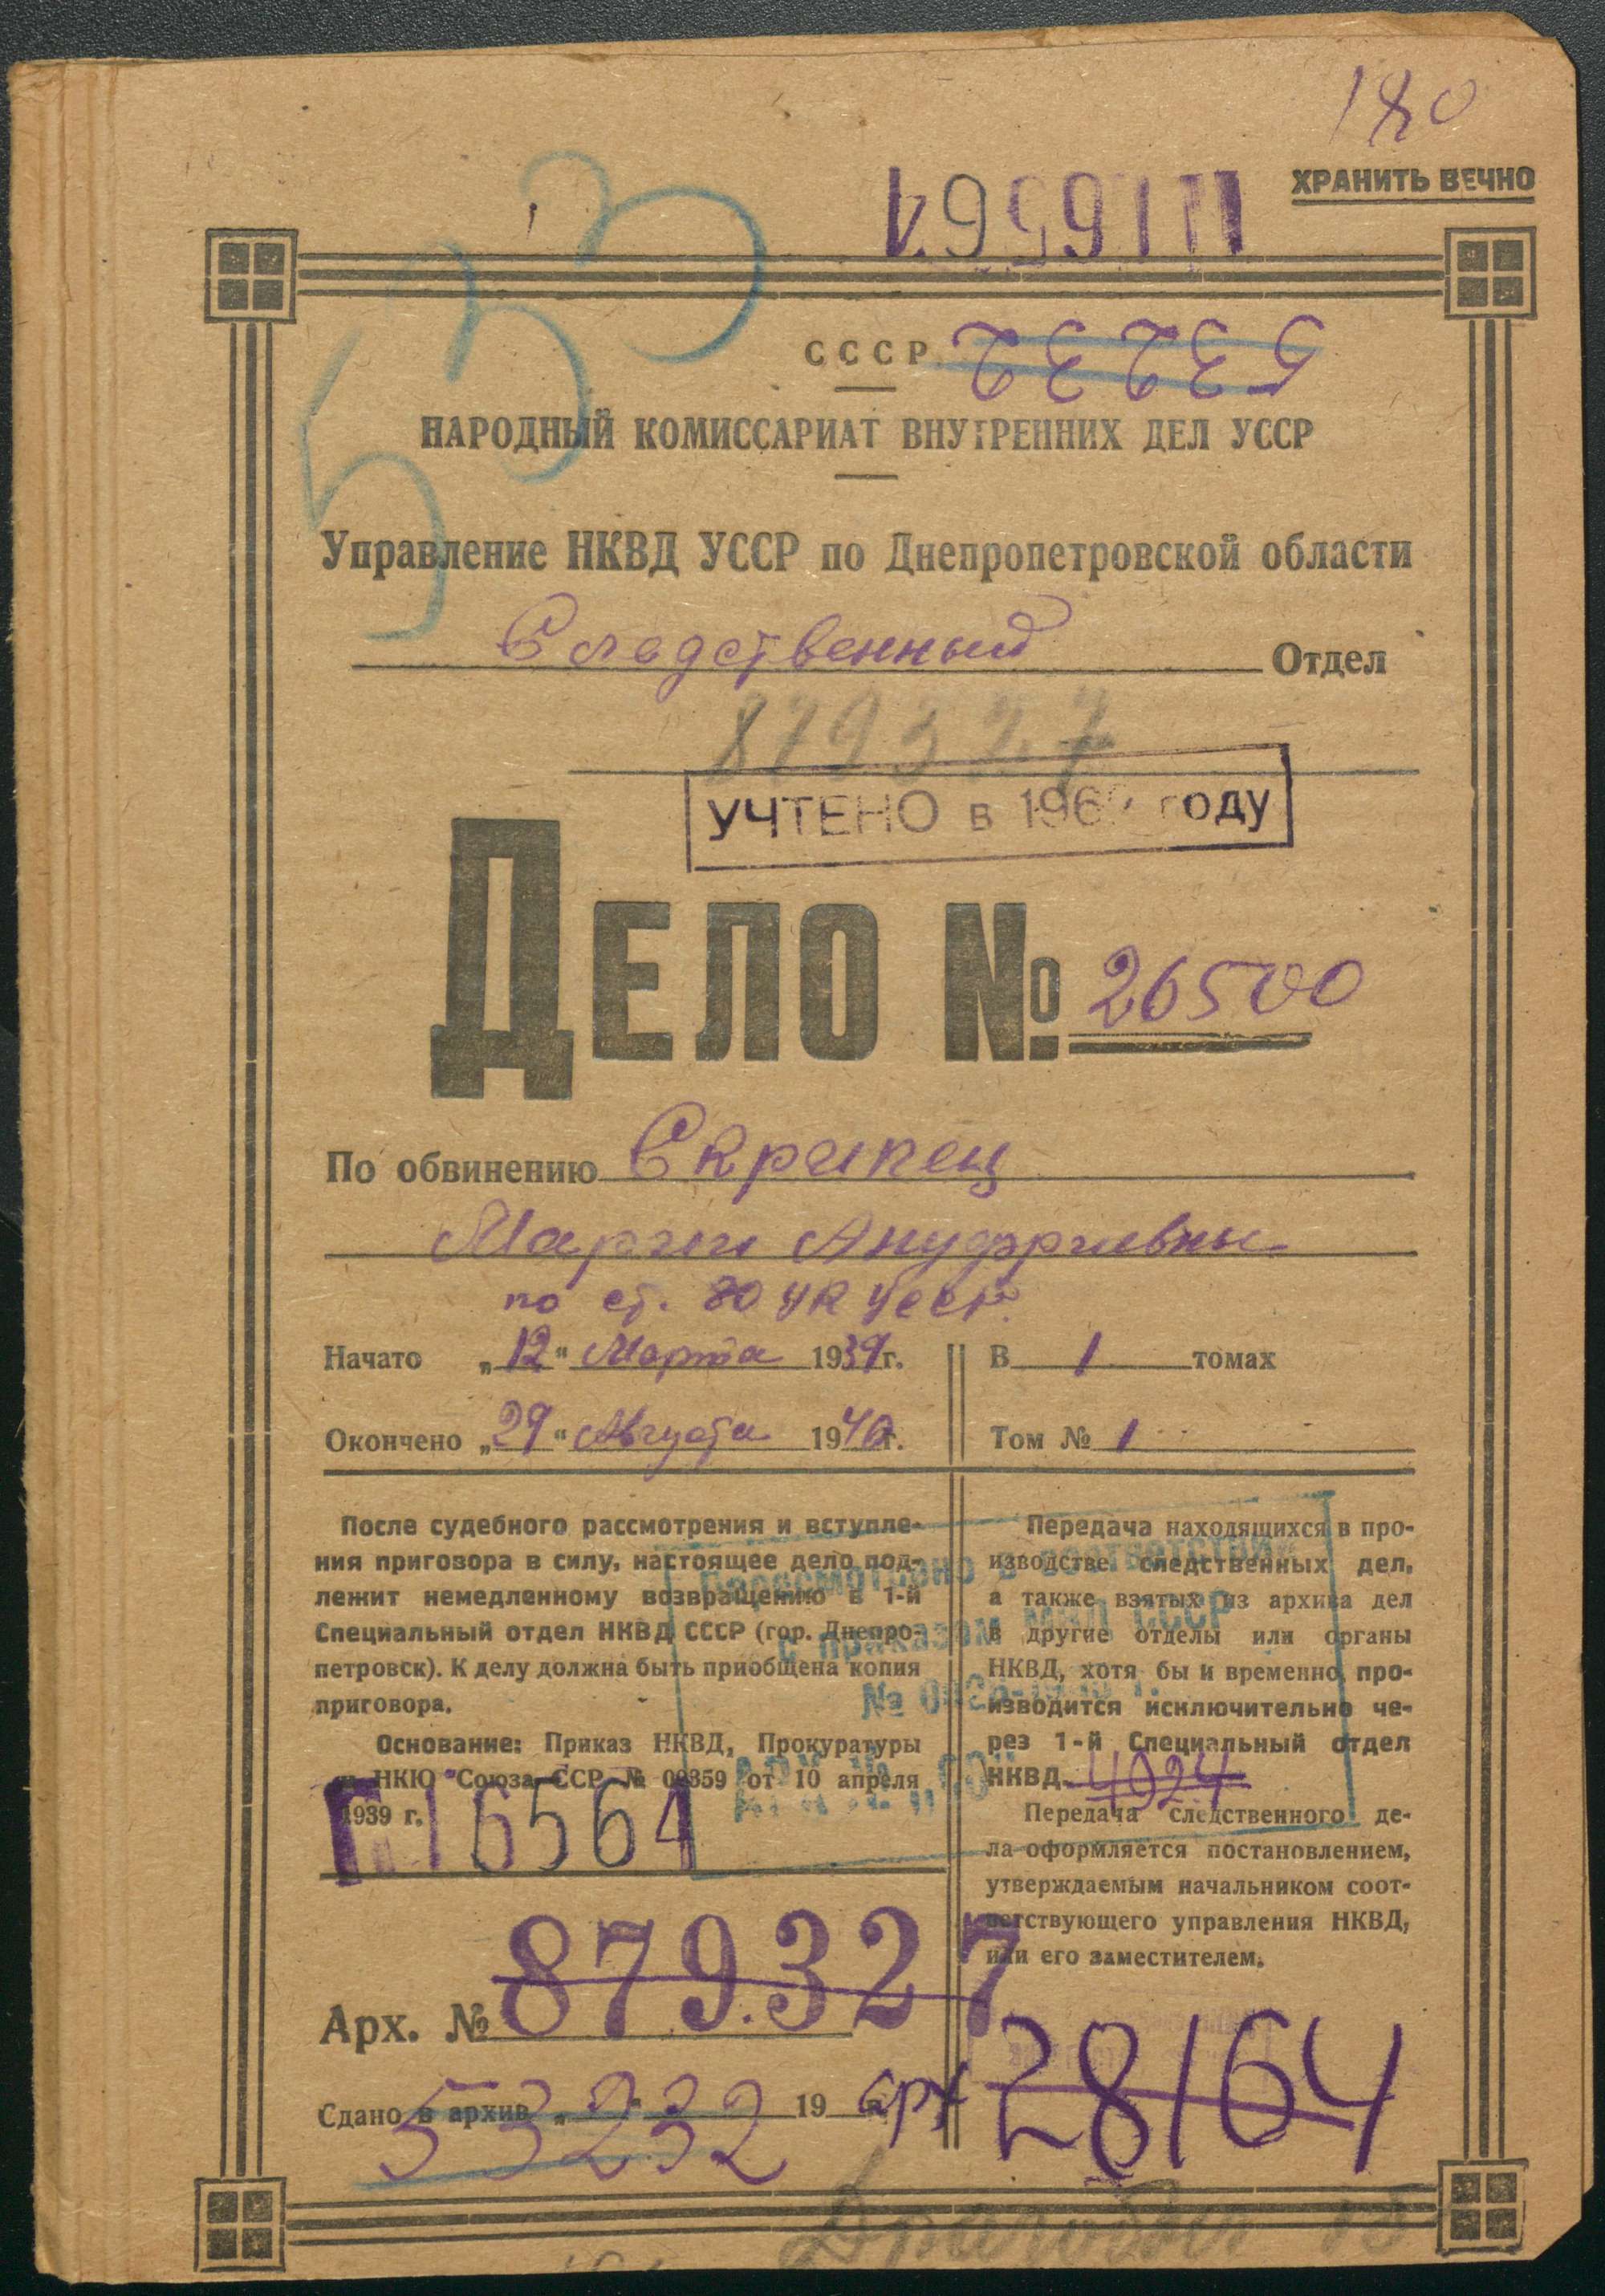 180
ХРАНИТЬ ВЕЧНО
СССР
53232
НАРОДНЫЙ КОМИССАРИАТ ВНУТРЕННИХ ДЕЛ УССР
Управление НКВД УССР по Днепропетровской области
Следственный Отдел
879327
УЧТЕНО в 196 году
ДЕЛО № 26500
По обвинению Скрипец
Марии Ануфриевны
по ст. 80 УК УССР.
Начато „12" Марта 1939 г.
В 1 томах
Окончено „29" Августа 1940 г.
Том № 1
После судебного рассмотрения и вступле-
ния приговора в силу, настоящее дело под-
лежит немедленному возвращению в 1-й
Специальный отдел НКВД СССР (гор. Днепро-
петровск). К делу должна быть приобщена копия
приговора.
Основание: Приказ НКВД, Прокуратуры
и НКЮ Союза ССР № 00359 от 10 апреля
1939 г.
16564
Передача находящихся в про-
изводстве следственных дел,
а также взятых из архива дел
в другие отделы или органы
НКВД, хотя бы и временно, про-
изводится исключительно че-
рез 1-й Специальный отдел
НКВД. 4924
Передача следственного де-
ла оформляется постановлением,
утверждаемым начальником соот-
ветствующего управления НКВД,
или его заместителем.
Рассмотрено в соответствии
с приказом МВД СССР
Арх. № 879327
Сдано в архив „ " 19
53232
арх 28164